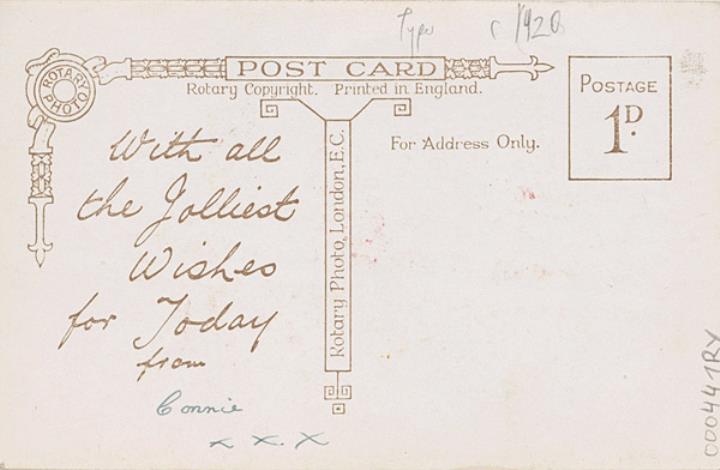 Typo c 1920
ROTARY PHOTO
POST CARD
Rotary Copyright. Printed in England.
POSTAGE
1D.
For Address Only.
Rotary Photo, London, E.C.
With all
the Jolliest
Wishes
for Today
from
Connie
x x. x
000447RY